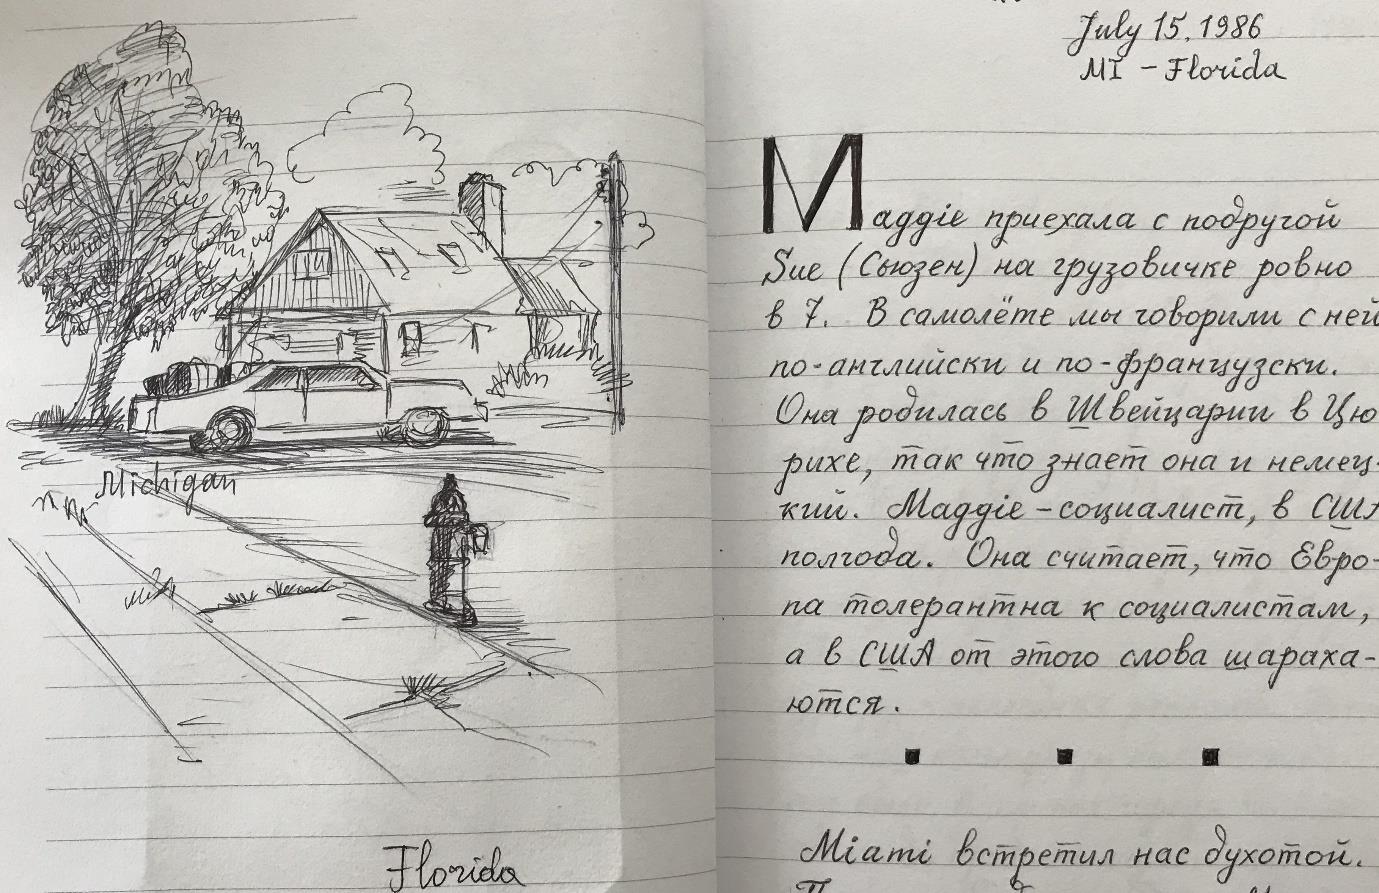 Michigan
Florida
July 15, 1986
MI – Florida
Maggie приехала с подругой
Sue (Сьюзен) на грузовичке ровно
в 7. В самолёте мы говорили с ней
по-английски и по-французски.
Она родилась в Швейцарии в Цю
рихе, так что знает она и немец-
кий. Maggie – социалист, в США
полгода. Она считает, что Евро-
па толерантна к социалистам,
а в США от этого слова шараха-
ются.
Miami встретил нас духотой.